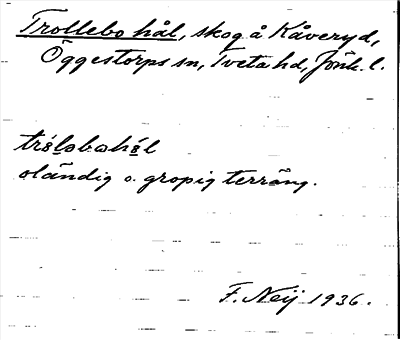 Trollebo hål, skog å Kåveryd,
Öggestorps sn, Tveta hd, Jönk. l.
tróləbohǻl
oländig o. gropig terräng.
F. Neij 1936.